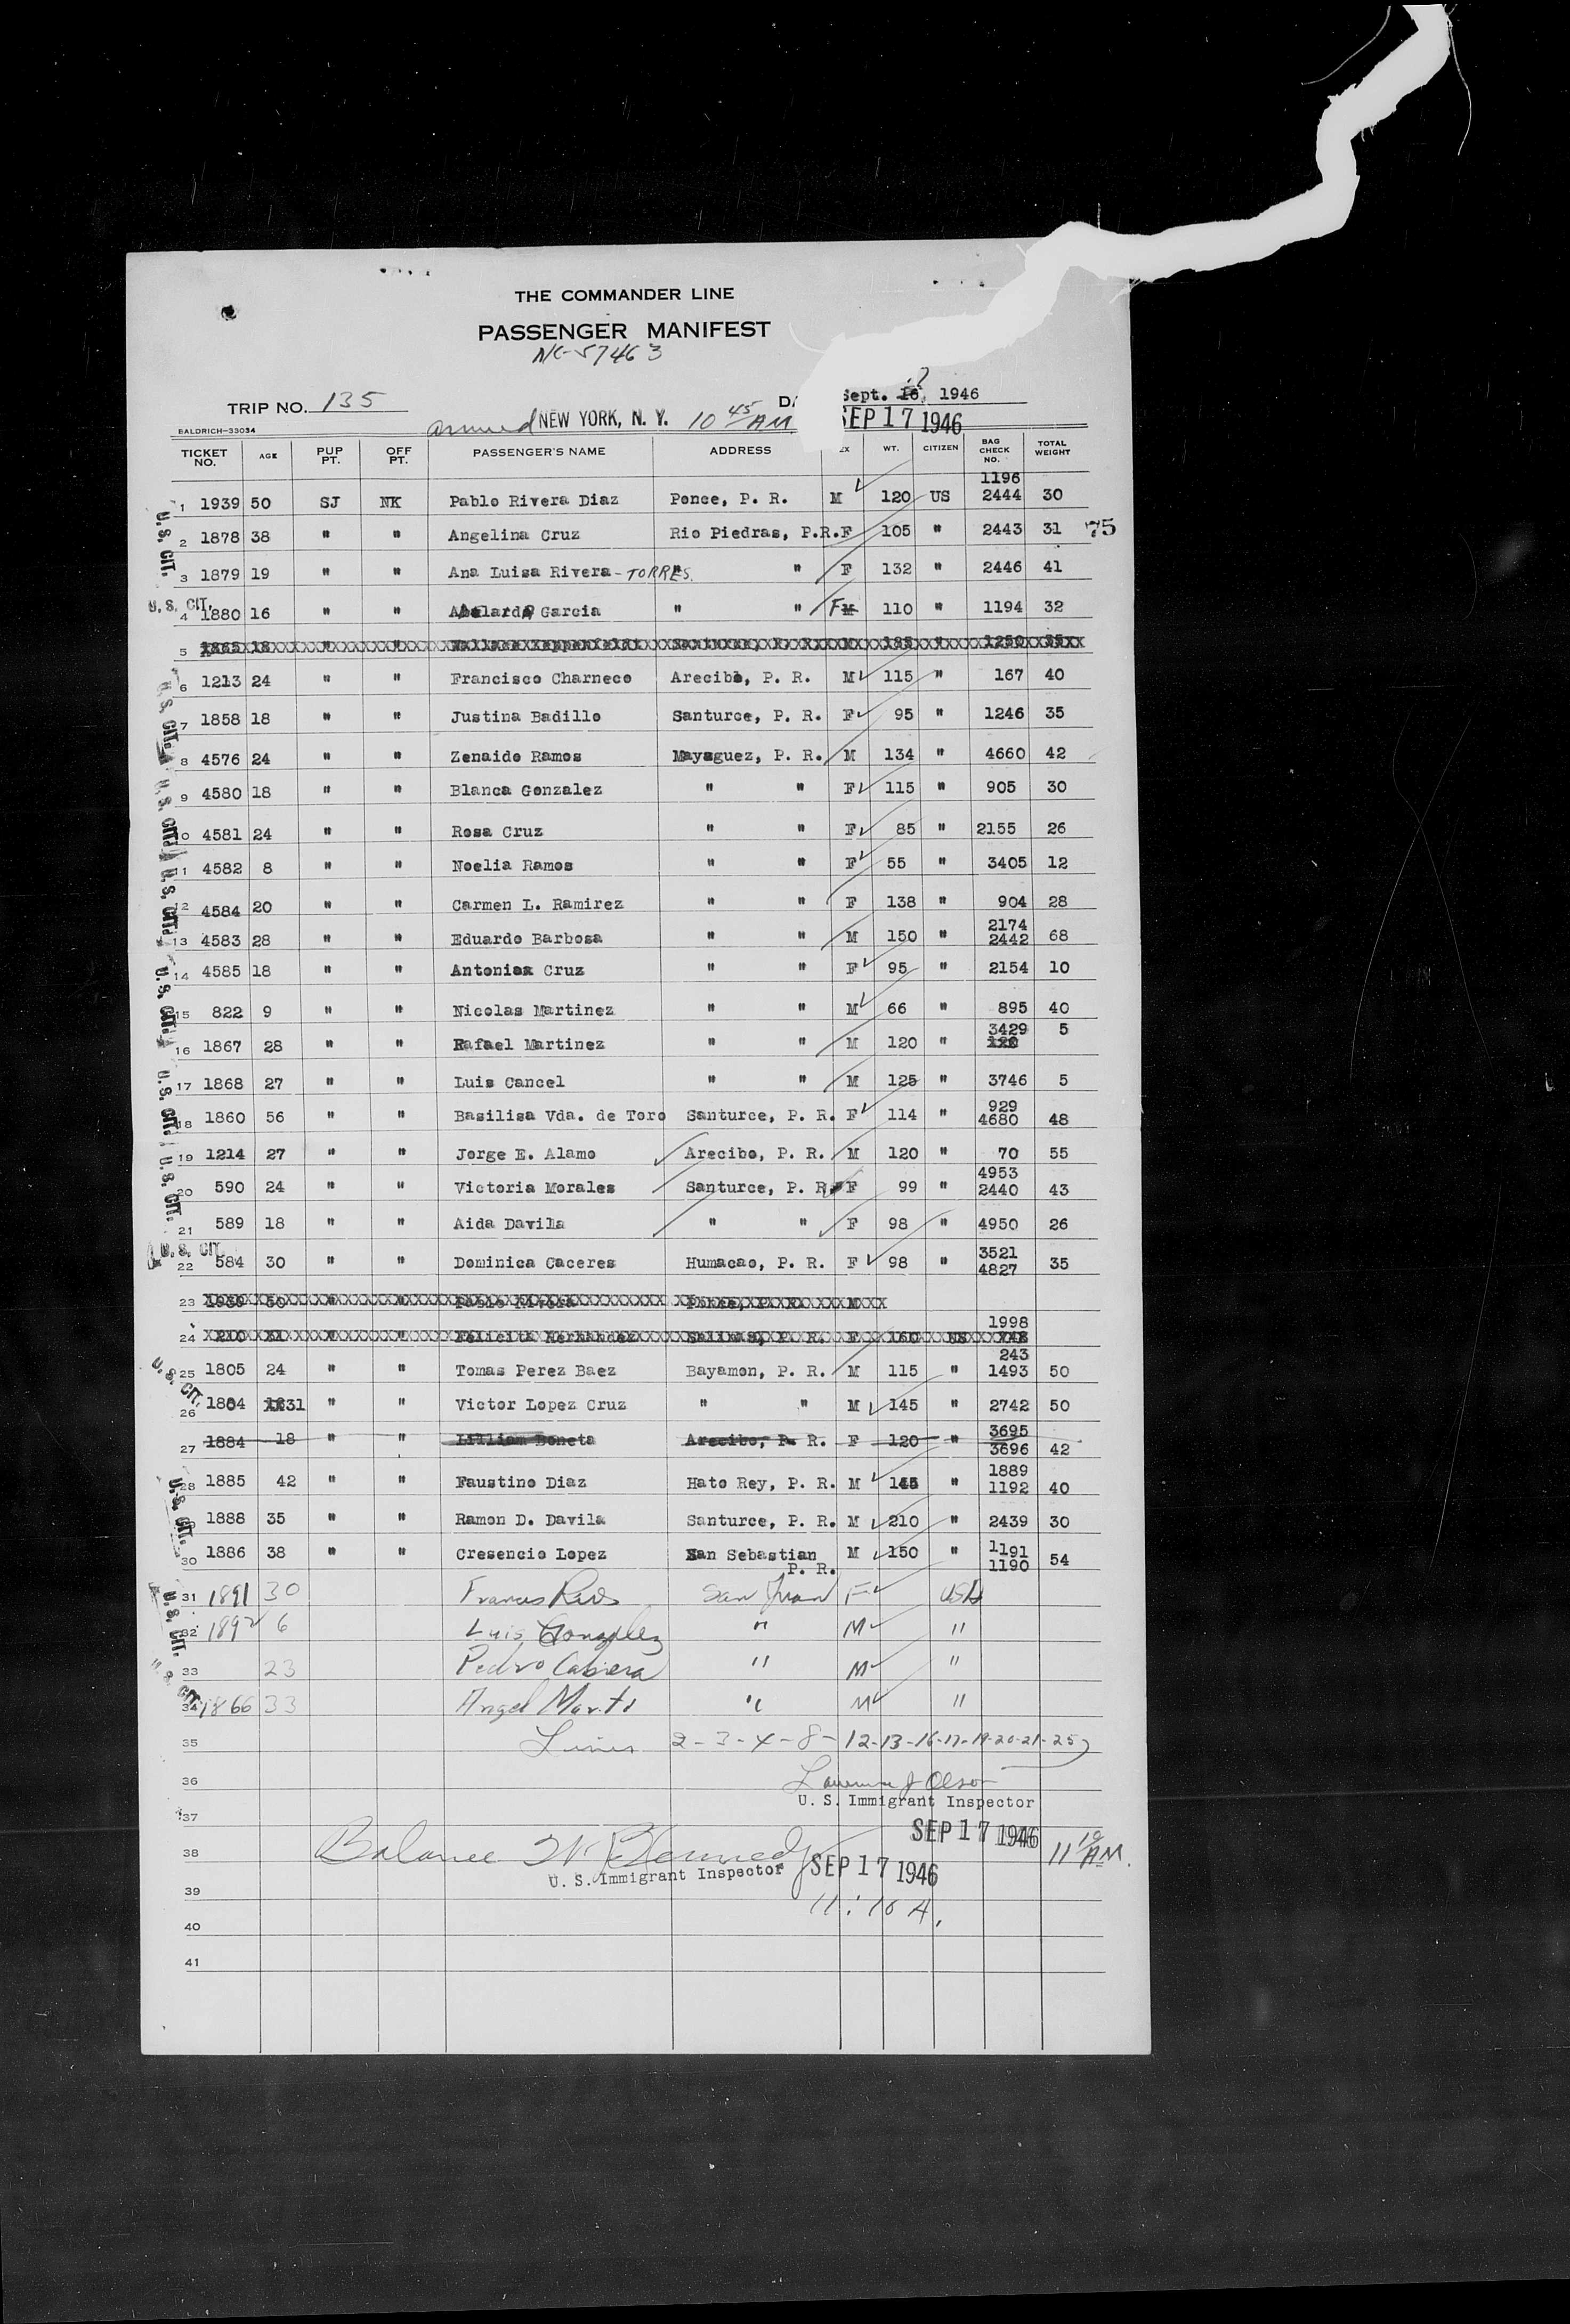 THE COMMANDER LINE
PASSENGER MANIFEST
NC-57463
TRIP NO. 135 Sept. 16, 1946
NEW YORK, N. Y. 10 45 AM SEP 17 1946
BALDRICH-33034
TICKET NO. AGE PUP PT. OFF PT. PASSENGER'S NAME ADDRESS WT. CITIZEN BAG CHECK NO. TOTAL WEIGHT
1196
1 1939 50 SJ NK Pablo Rivera Diaz Ponce, P. R. M 120 US 2444 30
2 1878 38 " " Angelina Cruz Rio Piedras, P.R. F 105 " 2443 31 75
3 1879 19 " " Ana Luisa Rivera - TORRES " " F 132 " 2446 41
U. S. CIT.
4 1880 16 " " Garcia " " F M 110 " 1194 32
5 18 " " M " 1250 35
6 1213 24 " " Francisco Charneco Arecibo, P. R. M 115 " 167 40
7 1858 18 " " Justina Badillo Santurce, P. R. F 95 " 1246 35
8 4576 24 " " Zenaido Ramos Mayaguez, P. R. M 134 " 4660 42
9 4580 18 " " Blanca Gonzalez " " F 115 " 905 30
10 4581 24 " " Rosa Cruz " " F 85 " 2155 26
11 4582 8 " " Noelia Ramos " " F 55 " 3405 12
12 4584 20 " " Carmen L. Ramirez " " F 138 " 904 28
2174
13 4583 28 " " Eduardo Barbosa " " M 150 " 2442 68
14 4585 18 " " Antonia Cruz " " F 95 " 2154 10
15 822 9 " " Nicolas Martinez " " M 66 " 895 40
3429 5
16 1867 28 " " Rafael Martinez " " M 120 "
17 1868 27 " " Luis Cancel " " M 125 " 3746 5
929
18 1860 56 " " Basilisa Vda. de Toro Santurce, P. R. F 114 " 4680 48
19 1214 27 " " Jorge E. Alamo Arecibo, P. R. M 120 " 70 55
4953
20 590 24 " " Victoria Morales Santurce, P. R. F 99 " 2440 43
21 589 18 " " Aida Davila " " F 98 " 4950 26
U. S. CIT.
3521
22 584 30 " " Dominica Caceres Humacao, P. R. F 98 " 4827 35
23 1939 50 " " Pablo Rivera Ponce, P. R. M
1998
24 210 21 " " Felicita Hernandez Salinas, P. R. F 160 US 748
243
25 1805 24 " " Tomas Perez Baez Bayamon, P. R. M 115 " 1493 50
26 1804 31 " " Victor Lopez Cruz " " M 145 " 2742 50
3695
27 1884 18 " " Lilliam Boneta Arecibo, P. R. F 120 " 3696 42
1889
28 1885 42 " " Faustino Diaz Hato Rey, P. R. M 145 " 1192 40
1888 35 " " Ramon D. Davila Santurce, P. R. M 210 " 2439 30
30 1886 38 " " Cresencio Lopez San Sebastian M 150 " 1191 54
P. R. 1190
31 1891 30 Frances Rios San Juan F USA
32 1892 6 Luis Gonzalez " M "
33 23 Pedro Cabrera " M "
34 1866 33 Angel Marti " M "
35 Lines 2-3-4-8-12-13-16-17-19-20-21-25
36 Olson
U. S. Immigrant Inspector
37 SEP 17 1946
38 Balance Kennedy 11 10 AM.
U. S. Immigrant Inspector SEP 17 1946
39 11:10 A.
40
41